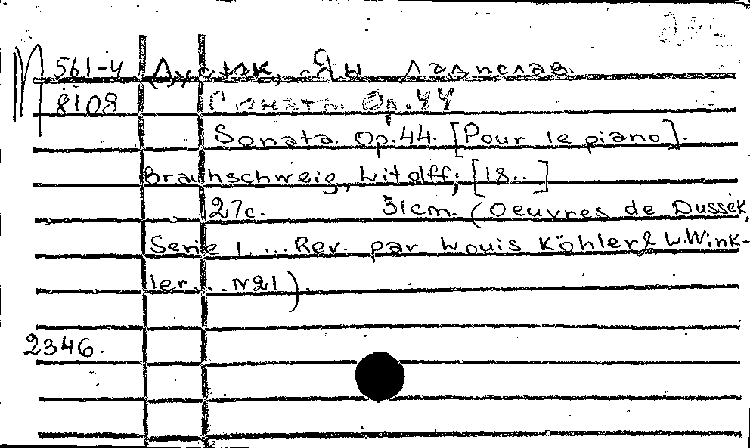 П 561-4 Дусек, Ян Ладислав
8108 Соната. Op.44
Sonata. Op.44. [Pour le piano].
Braunschweig, Litolff, [18..]
27c. 31cm. (Oeuvres de Dussek,
Serie 1. ... Rev. par Louis Köhler & W. Wink-
ler... N21)
2346.